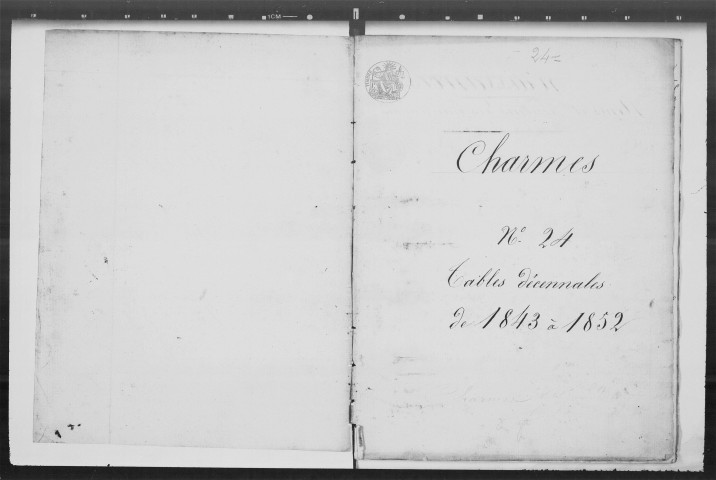 24=
Charmes
N° 24
Tables décennales
de 1843 à 1852